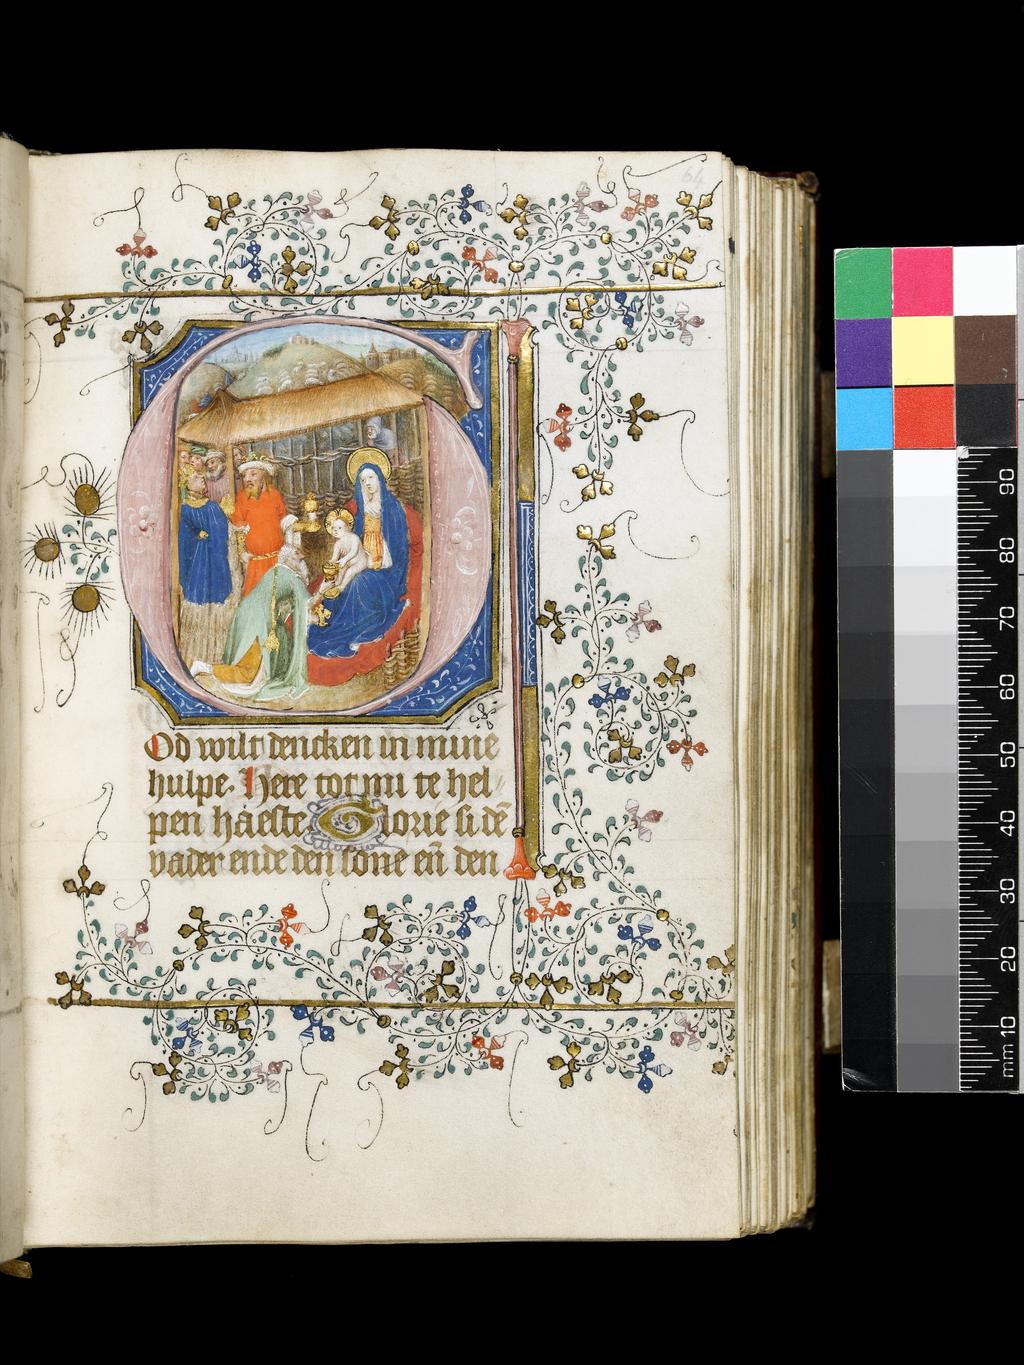 64
God wilt dencken in mine
hulpe. Here tot mi te hel
pen haeste Glorie si dē
vader ende den sone eñ den
90
80
70
60
50
40
30
20
mm 10